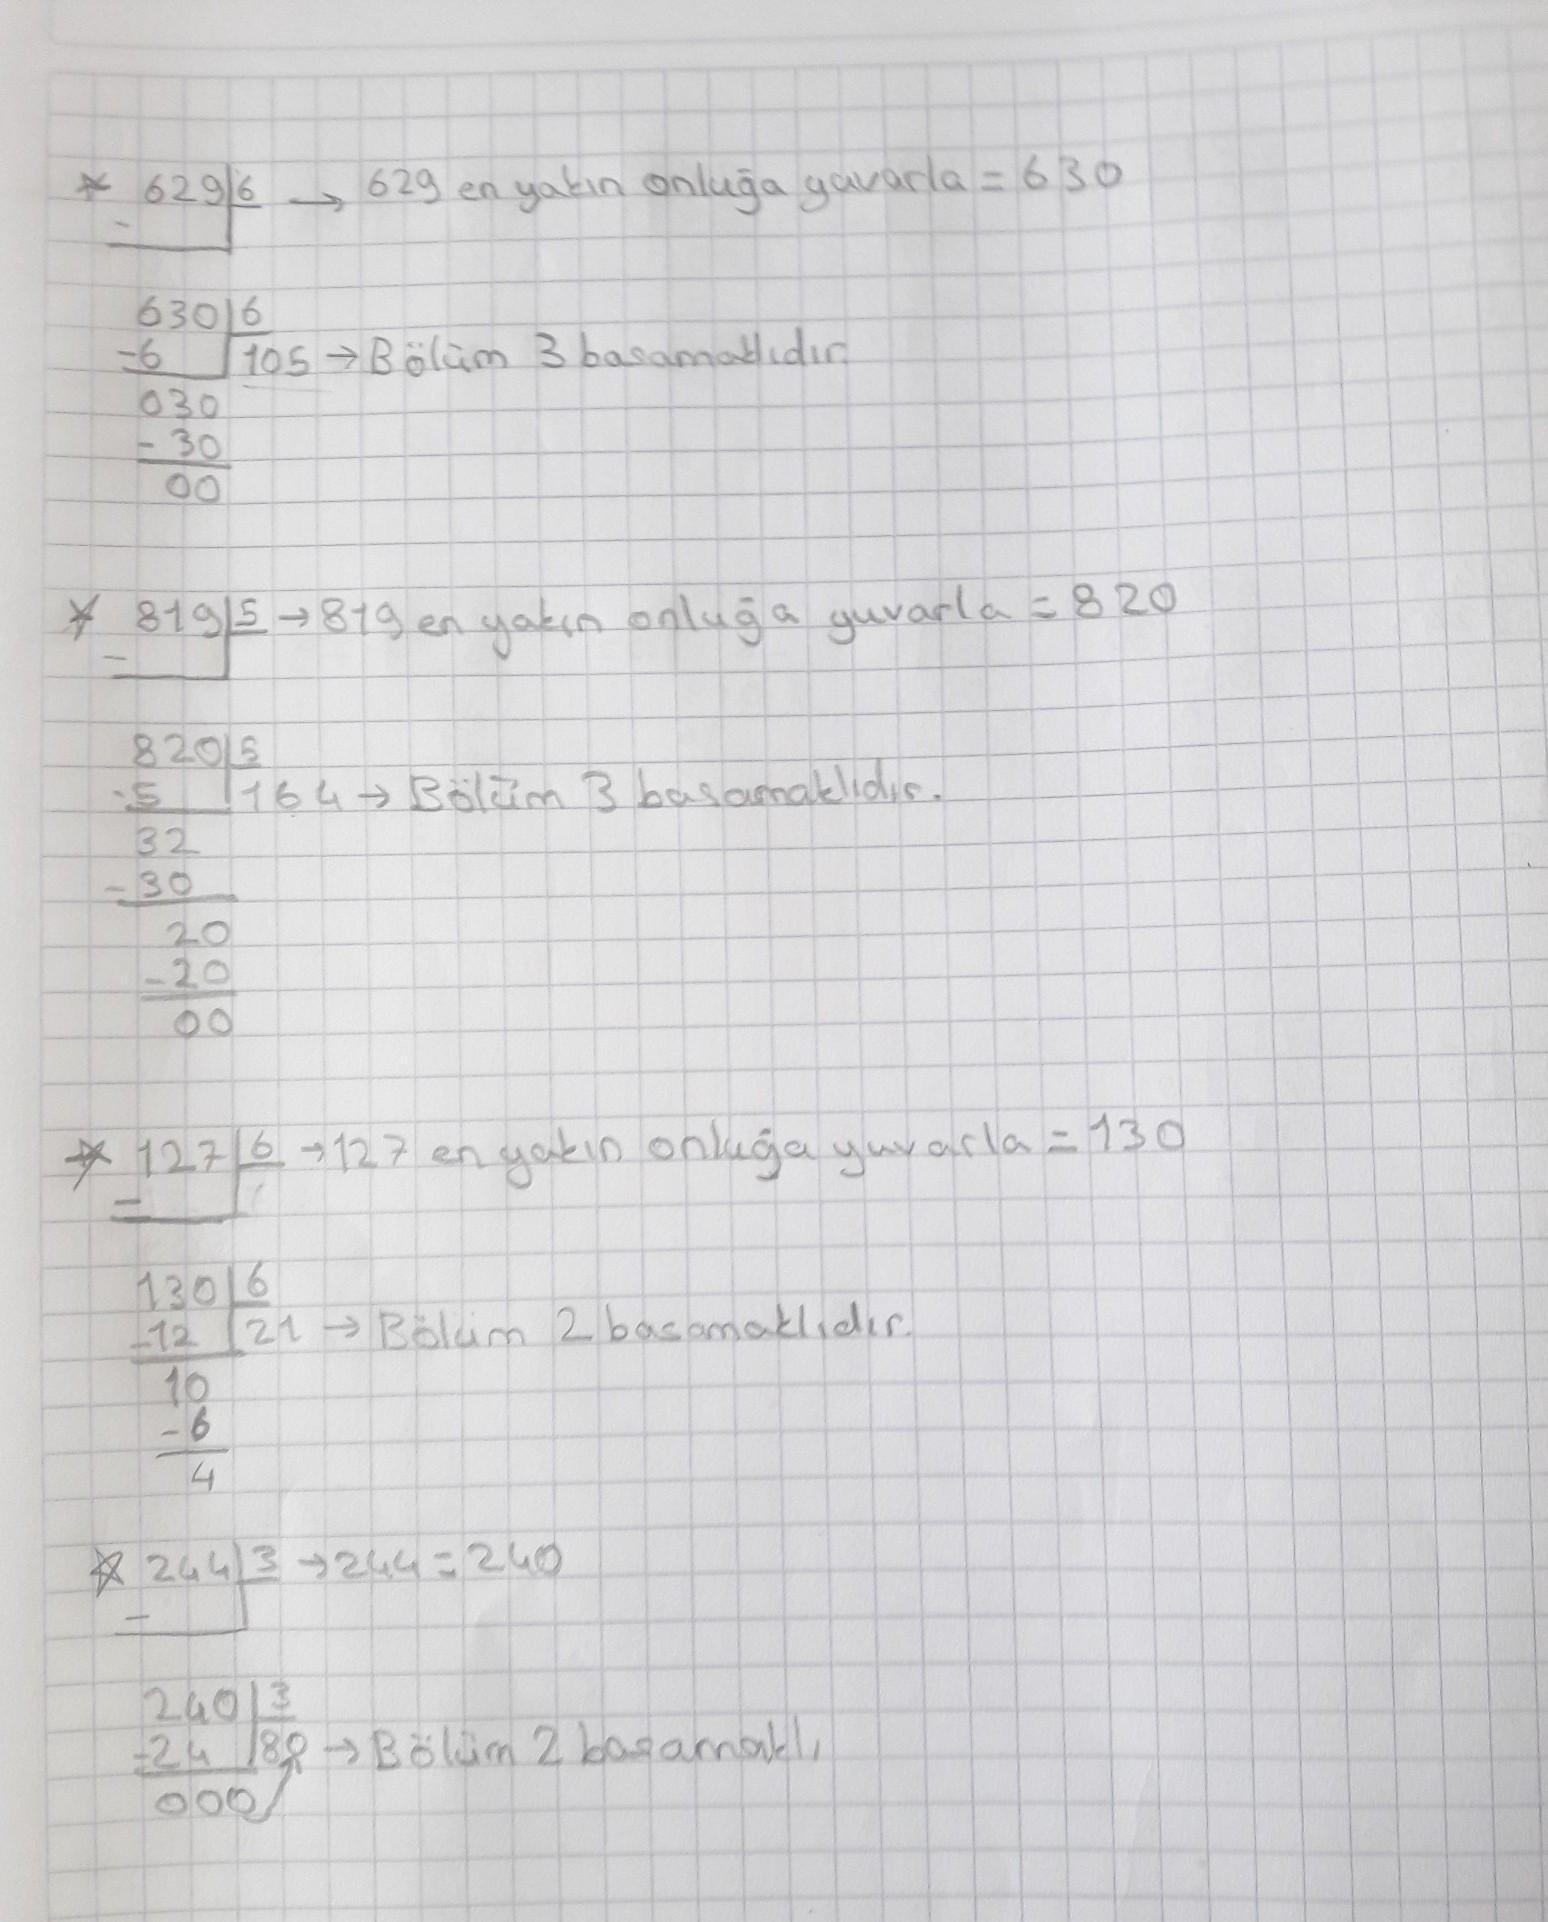 * 629 6 → 629 en yakın onluğa yuvarla = 630
-
630 6
-6 105 → Bölüm 3 basamaklıdır.
030
-30
00
* 819 5 → 819 en yakın onluğa yuvarla = 820
-
820 5
-5 164 → Bölüm 3 basamaklıdır.
32
-30
20
-20
00
* 127 6 → 127 en yakın onluğa yuvarla = 130
-
130 6
-12 21 → Bölüm 2 basamaklıdır.
10
-6
4
* 244 3 → 244 = 240
-
240 3
-24 80 → Bölüm 2 basamaklı
000